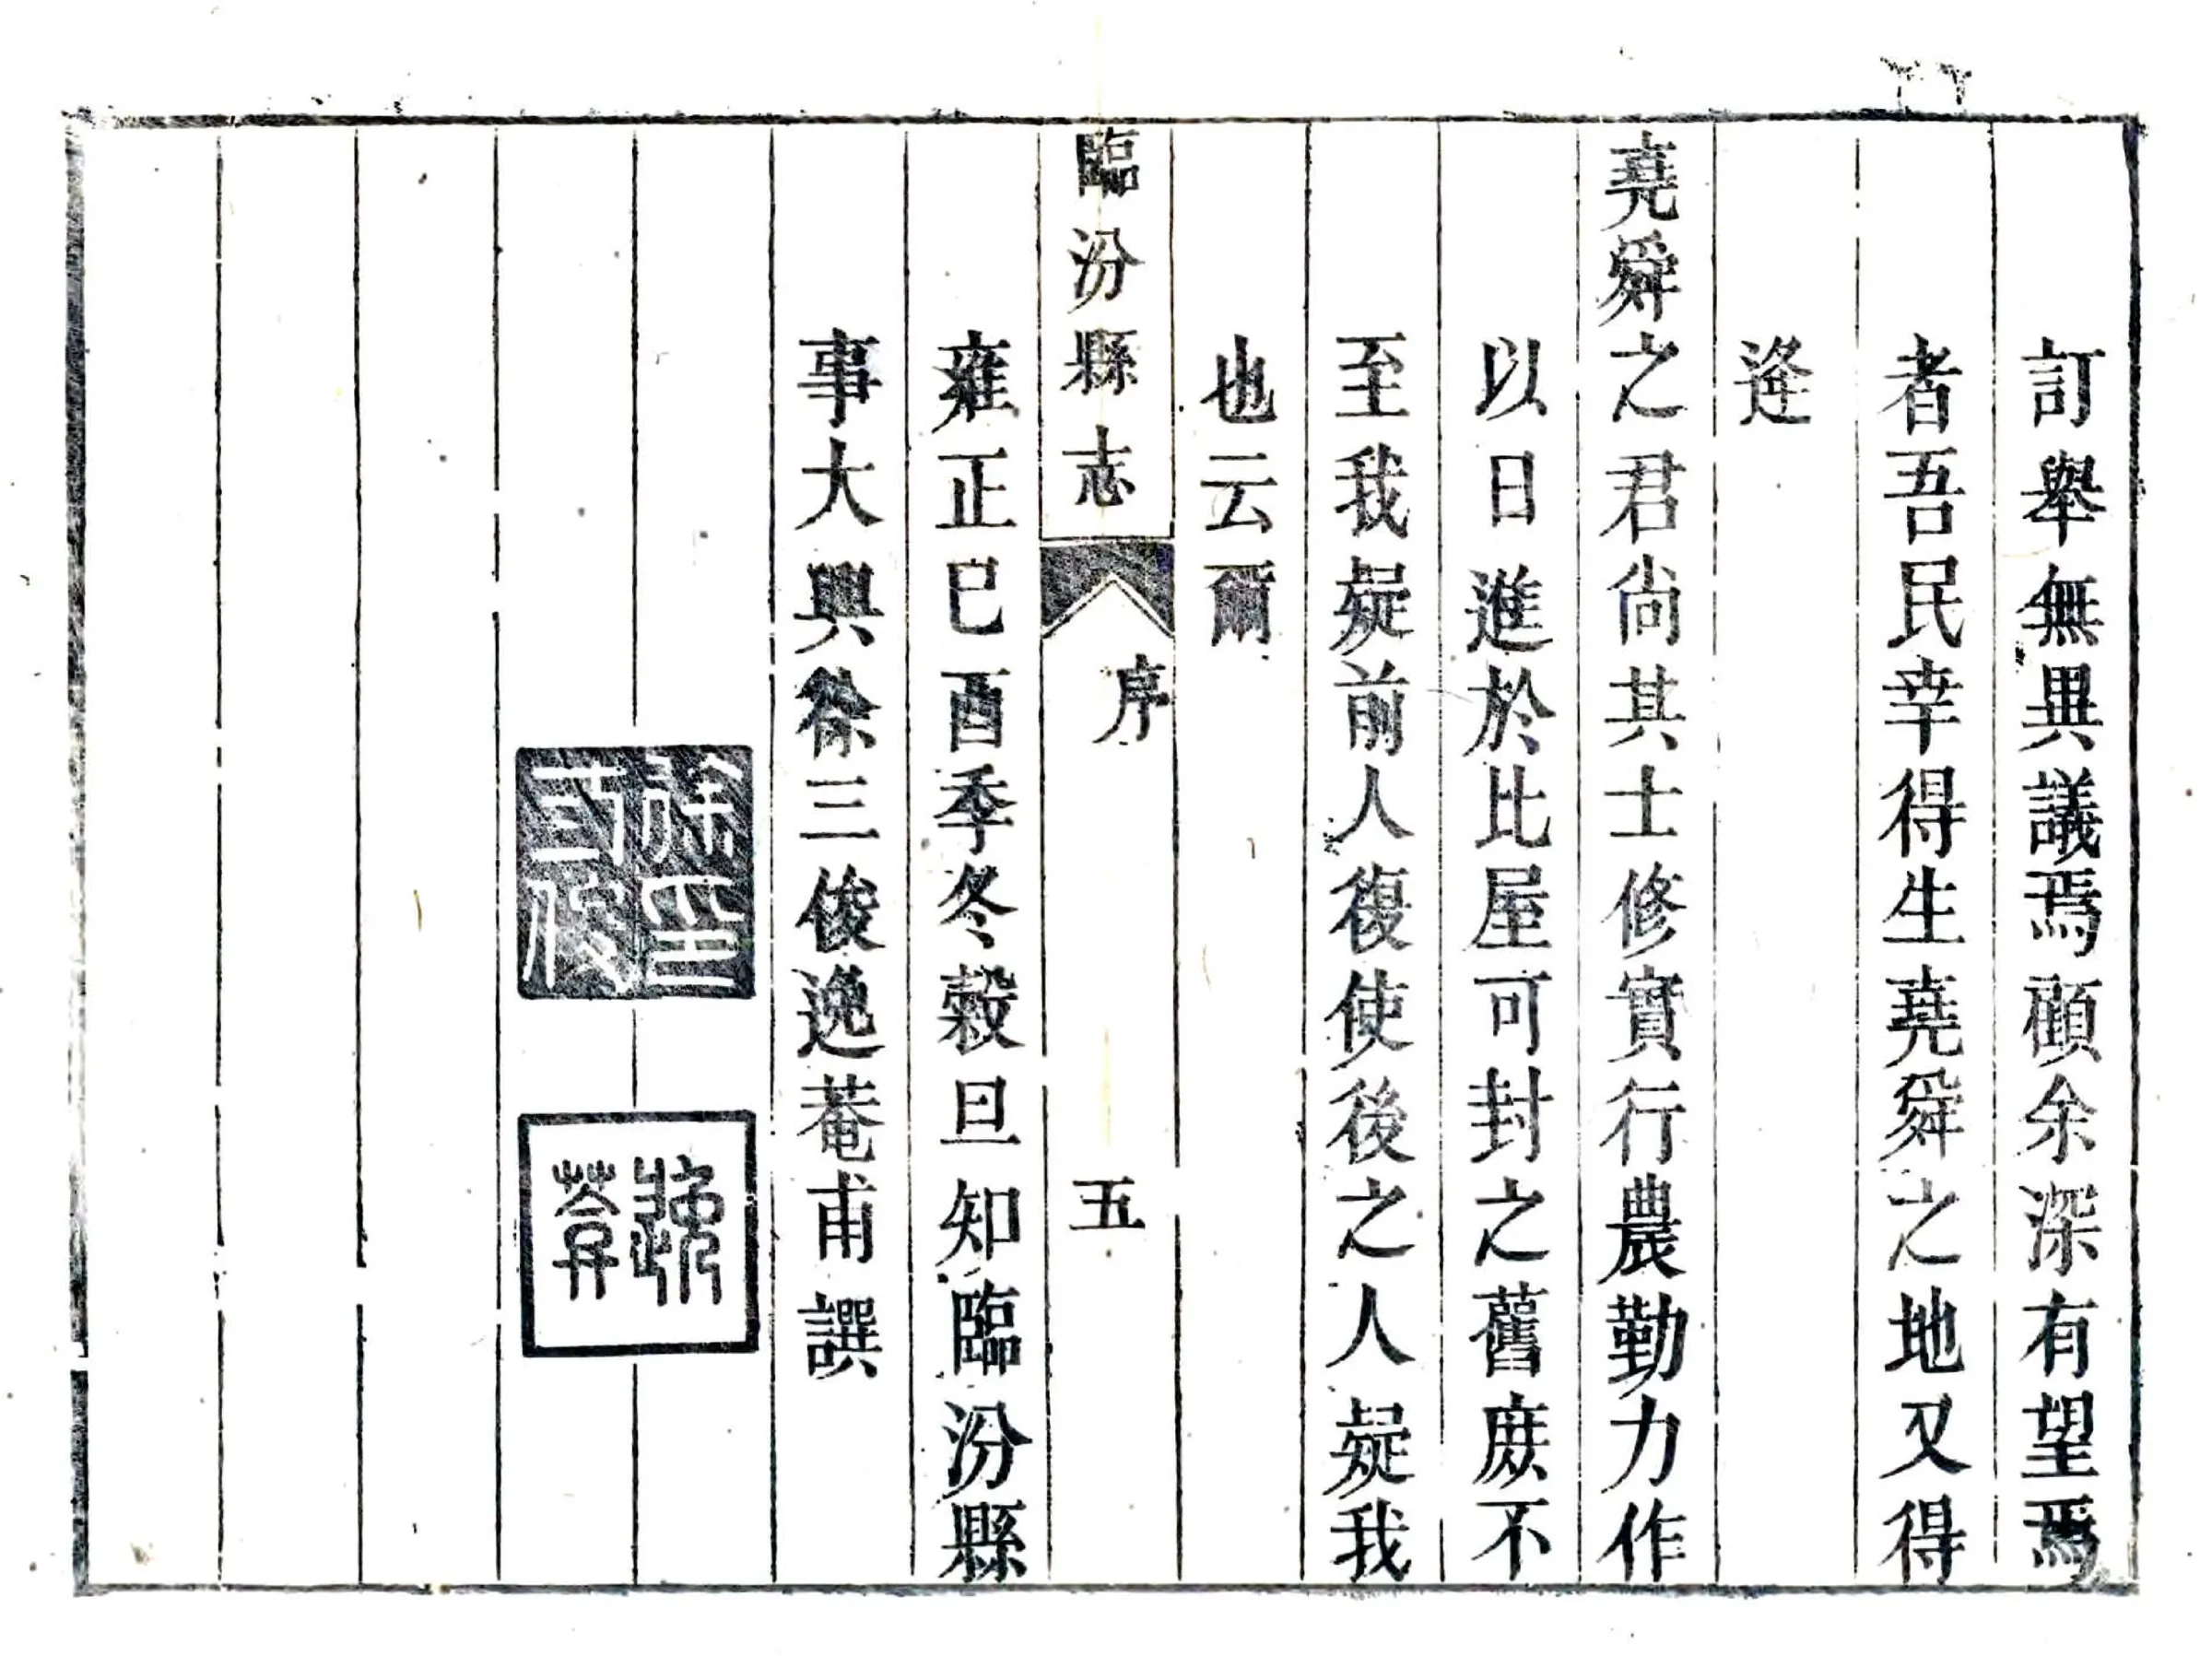 訂舉無異議焉顧余深有望焉
者吾民幸得生堯舜之地又得
逢
堯舜之君尚其士修實行農勤力作
以日進於比屋可封之舊庶不
至我疑前人復使後之人疑我
也云爾
臨汾縣志
序
五
雍正己酉季冬穀旦知臨汾縣
事大興徐三俊逸菴甫譔
徐三俊印
逸菴